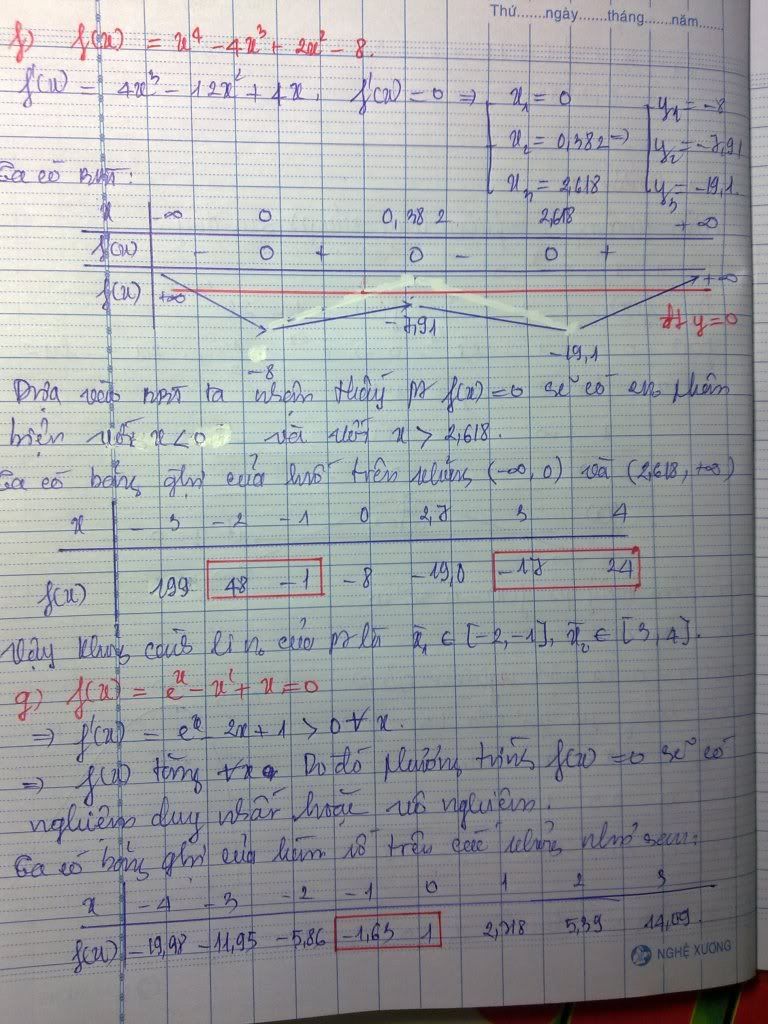 Thứ.......ngày.......tháng......năm.......
f) f(x) = x⁴ - 4x³ + 2x² - 8.
f'(x) = 4x³ - 12x² + 4x. f'(x) = 0 ⇒ x₁ = 0 y₁ = -8
x₂ = 0,382 ⇒ y₂ = -7,91
x₃ = 2,618 y₃ = -19,1
Ta có BBT:
x -∞ 0 0,382 2,618 +∞
f'(x) - 0 + 0 - 0 +
f(x) +∞ +∞
đt y=0
-7,91
-8 -19,1
Dựa vào BBT ta nhận thấy pt f(x)=0 sẽ có 2 n phân
biệt với x<0 và với x > 2,618.
Ta có bảng gtrị của hsố trên khoảng (-∞, 0) và (2,618, +∞)
x -3 -2 -1 0 2,7 3 4
f(x) 199 48 -1 -8 -19,0 -17 24
Vậy khoảng cách li n của pt là x̄₁ ∈ [-2,-1], x̄₂ ∈ [3,4].
g) f(x) = eˣ - x² + x = 0
⇒ f'(x) = eˣ - 2x + 1 > 0 ∀x.
⇒ f(x) tăng ∀x. Do đó phương trình f(x)=0 sẽ có
nghiệm duy nhất hoặc vô nghiệm.
Ta có bảng gtrị của hàm số trên các khoảng như sau:
x -4 -3 -2 -1 0 1 2 3
f(x) -19,98 -11,95 -5,86 -1,63 1 2,718 5,39 14,09.
NGHỆ XƯƠNG